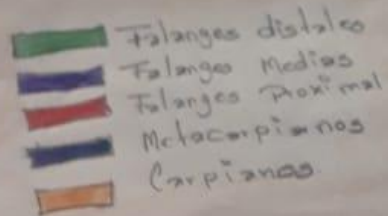 Falanges distales
Falanges Medias
Falanges Proximal
Metacarpianos
Carpianos